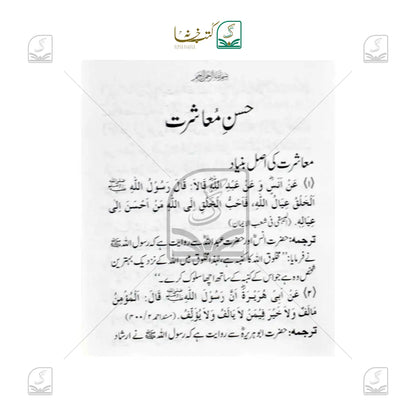 کتب خانہ
KUTUB KHANA
بسم اللہ الرحمن الرحیم
حسنِ مُعاشرت
معاشرت کی اصل بنیاد
(۱) عَنْ اَنَسٍؓ وَ عَنْ عَبْدِ اللّٰهِؓ قَالَا: قَالَ رَسُوْلُ اللّٰهِ ﷺ
اَلْخَلْقُ عِيَالُ اللّٰهِ، فَاَحَبُّ الْخَلْقِ اِلَى اللّٰهِ مَنْ اَحْسَنَ اِلٰى
عِيَالِهٖ. (البیہقی فی شعب الایمان)
ترجمہ: حضرت انسؓ اور حضرت عبد اللہؓ سے روایت ہے کہ رسول اللہ ﷺ
نے فرمایا: ’’مخلوق اللہ کا کنبہ ہے، لہٰذا مخلوق میں اللہ کے نزدیک بہترین
شخص وہ ہے جو اس کے کنبہ کے ساتھ اچھا سلوک کرے۔‘‘
(۲) عَنْ اَبِیْ هُرَيْرَةَؓ اَنَّ رَسُوْلَ اللّٰهِ ﷺ قَالَ: اَلْمُؤْمِنُ
مَالَفٌ وَلَا خَيْرَ فِيْمَنْ لَّا يَالَفُ وَلَا يُوْلَفُ. (مسند احمد ۲/۴۰۰)
ترجمہ: حضرت ابو ہریرہؓ سے روایت ہے کہ رسول اللہ ﷺ نے ارشاد